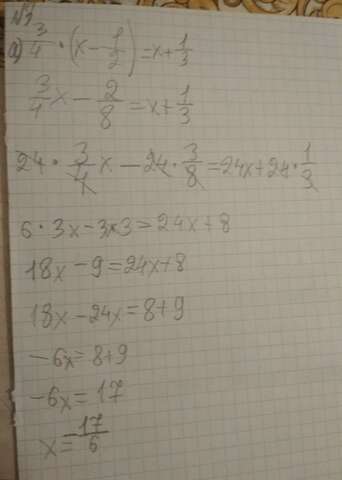 №1
а) 3/4 · (x − 1/2) = x + 1/3
3/4 x − 2/8 = x + 1/3
24 · 3/4 x − 24 · 3/8 = 24x + 24 · 1/3
6 · 3x − 3×3 = 24x + 8
18x − 9 = 24x + 8
18x − 24x = 8 + 9
−6x = 8 + 9
−6x = 17
x = −17/6